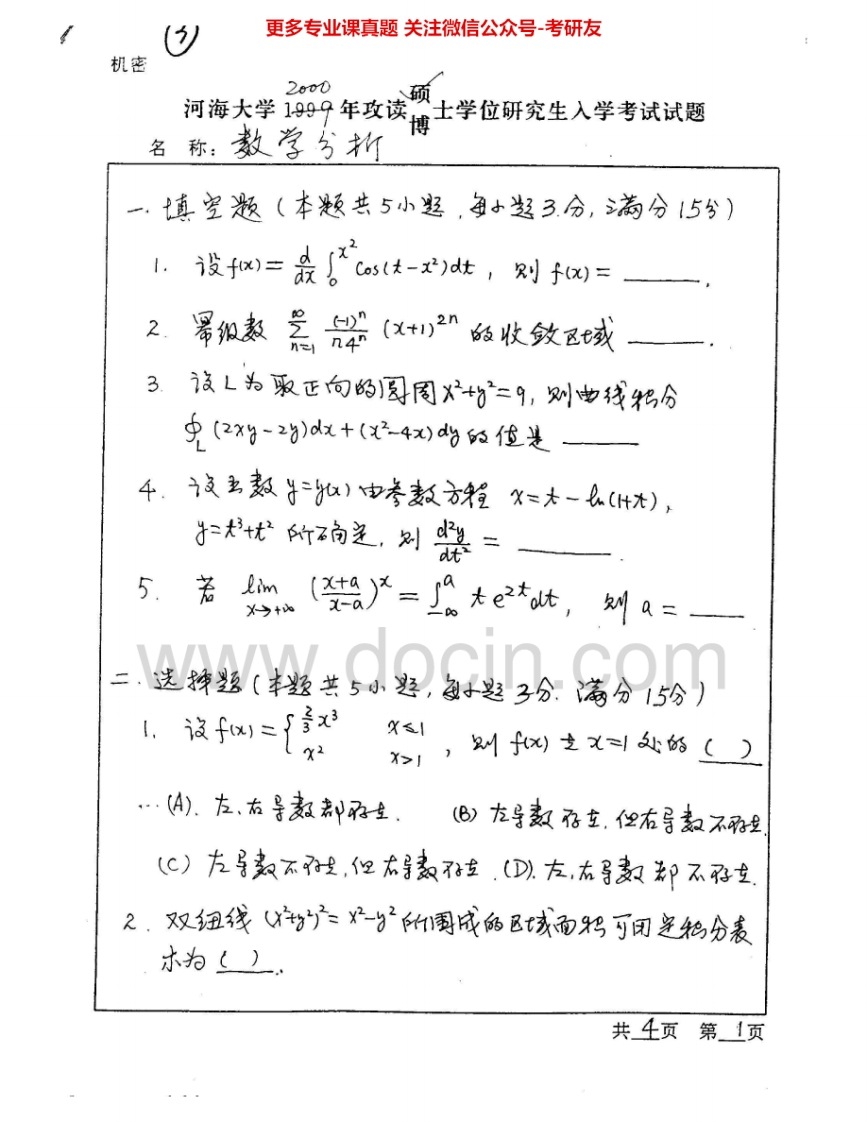 更多专业课真题 关注微信公众号-考研友
(3)
机密
河海大学 1999 2000 年攻读 硕 博 士学位研究生入学考试试题
名 称: 数学分析
一. 填空题 (本题共5小题, 每小题3分, 满分15分)
1. 设 f(x) = d/dx ∫₀^{x²} cos(t-x²)dt , 则 f(x) = ______.
2. 幂级数 ∑_{n=1}^{∞} (-1)ⁿ/(n4ⁿ) (x+1)^{2n} 的收敛区域 ______.
3. 设L为取正向的圆周 x²+y²=9, 则曲线积分
∮_L (2xy-2y)dx+(x²-4x)dy 的值是 ______
4. 设函数 y=y(x) 由参数方程 x=t-ln(1+t),
y=t³+t² 所确定, 则 d²y/dt² = ______.
5. 若 lim_{x→+∞} ((x+a)/(x-a))^x = ∫_{-∞}^a te^{2t}dt, 则 a = ____
www.docin.com
二. 选择题 (本题共5小题, 每小题3分. 满分15分)
1. 设 f(x) = { 2/3 x³ x≤1
x² x>1 , 则 f(x) 在 x=1 处的 ( )
(A). 左、右导数都存在. (B) 左导数存在, 但右导数不存在
(C) 左导数不存在, 但右导数存在. (D). 左,右导数都不存在.
2. 双纽线 (x²+y²)²=x²-y² 所围成的区域面积可用定积分表
示为 ( ).
共 4 页 第 1 页